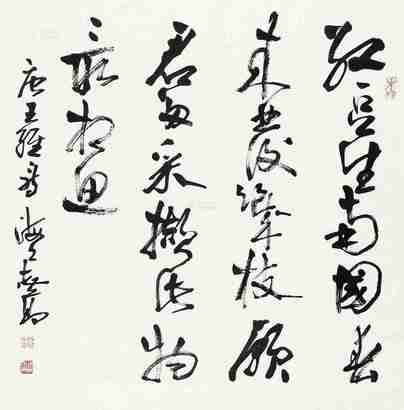 紅豆生南國春
來發幾枝願
君多采擷此物
最相思
唐王維詩 海上